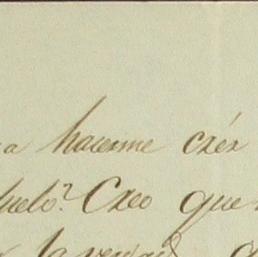 a hacerme crér
suelo? Creo que
la verdad